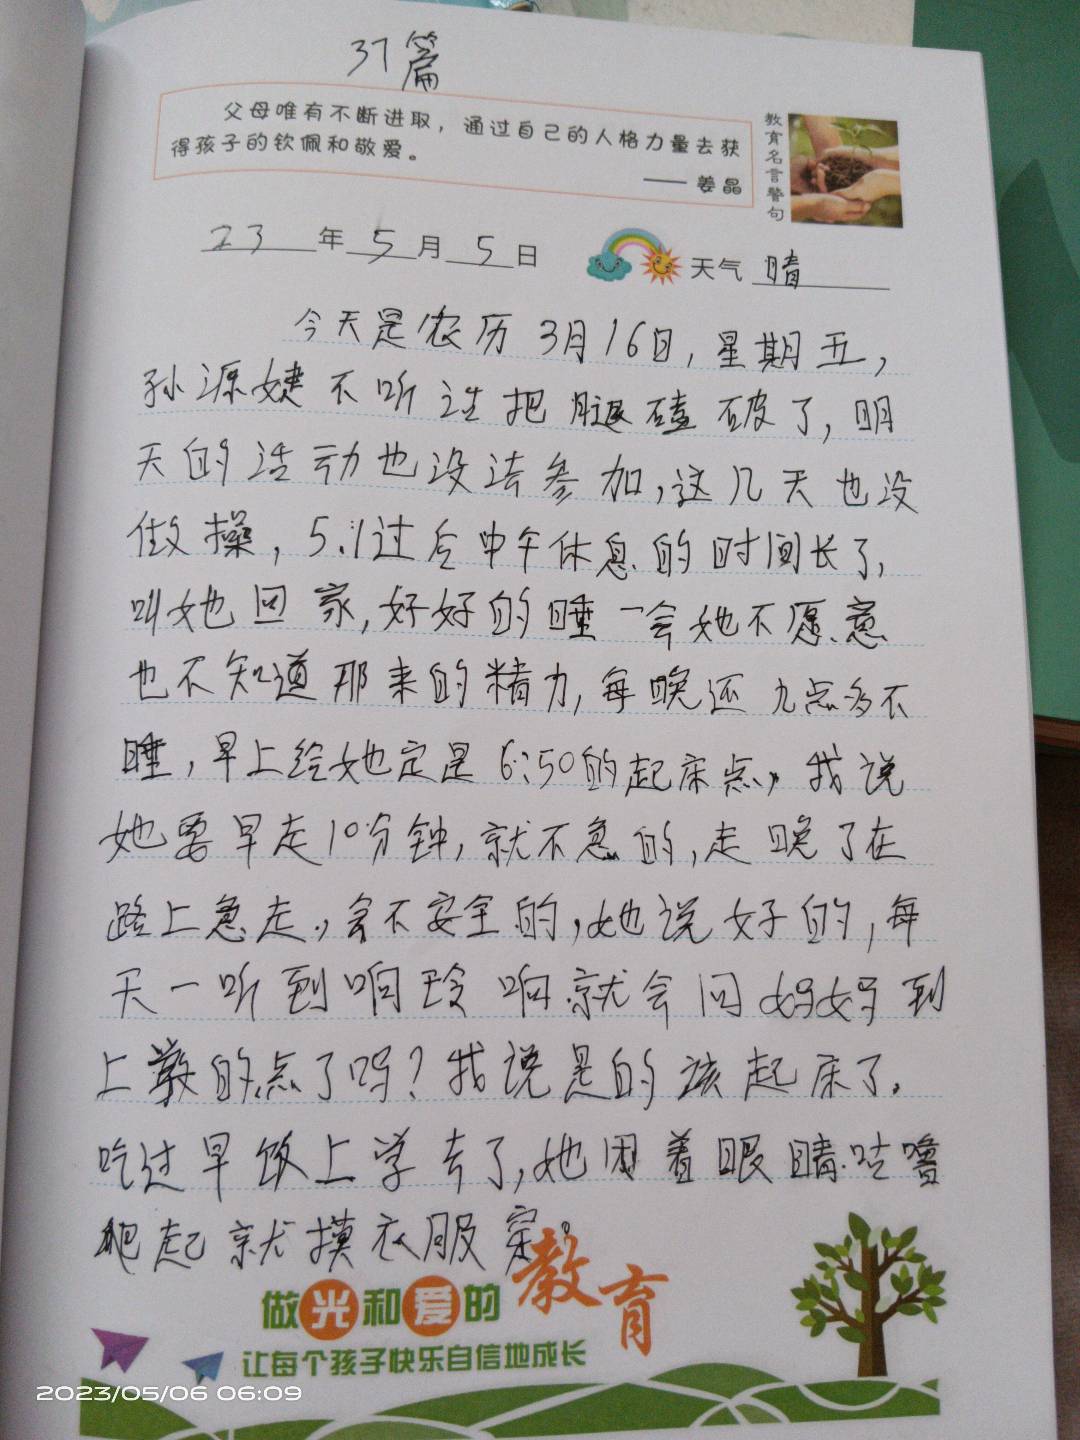 37篇
父母唯有不断进取，通过自己的人格力量去获
得孩子的钦佩和敬爱。
—— 姜晶
教育名言警句
23年5月5日 天气 晴
今天是农历3月16日，星期五，
孙源婕不听话把腿磕破了，明
天的活动也没法参加，这几天也没
做操，5.1过后中午休息的时间长了，
叫她回家，好好的睡一会她不愿意
也不知道那来的精力，每晚还九点多不
睡，早上给她定是6:50的起床点，我说
她要早走10分钟，就不急的，走晚了在
路上急走，会不安全的，她说好的，每
天一听到响玲响就会问妈妈到
上学的点了吗？我说是的该起床了。
吃过早饭上学去了，她困着眼睛咕噜
爬起就摸衣服穿。
做光和爱的教育
让每个孩子快乐自信地成长
2023/05/06 06:09